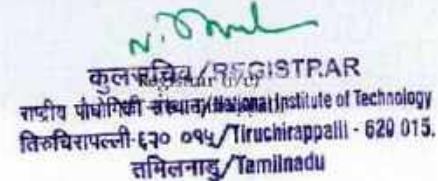 कुलसचिव/REGISTRAR
Registrar (i/c)
राष्ट्रीय प्रौद्योगिकी संस्थान/National Institute of Technology
तिरुचिरापल्ली-६२० ०१५/Tiruchirappalli - 620 015.
तमिलनाडु/Tamilnadu